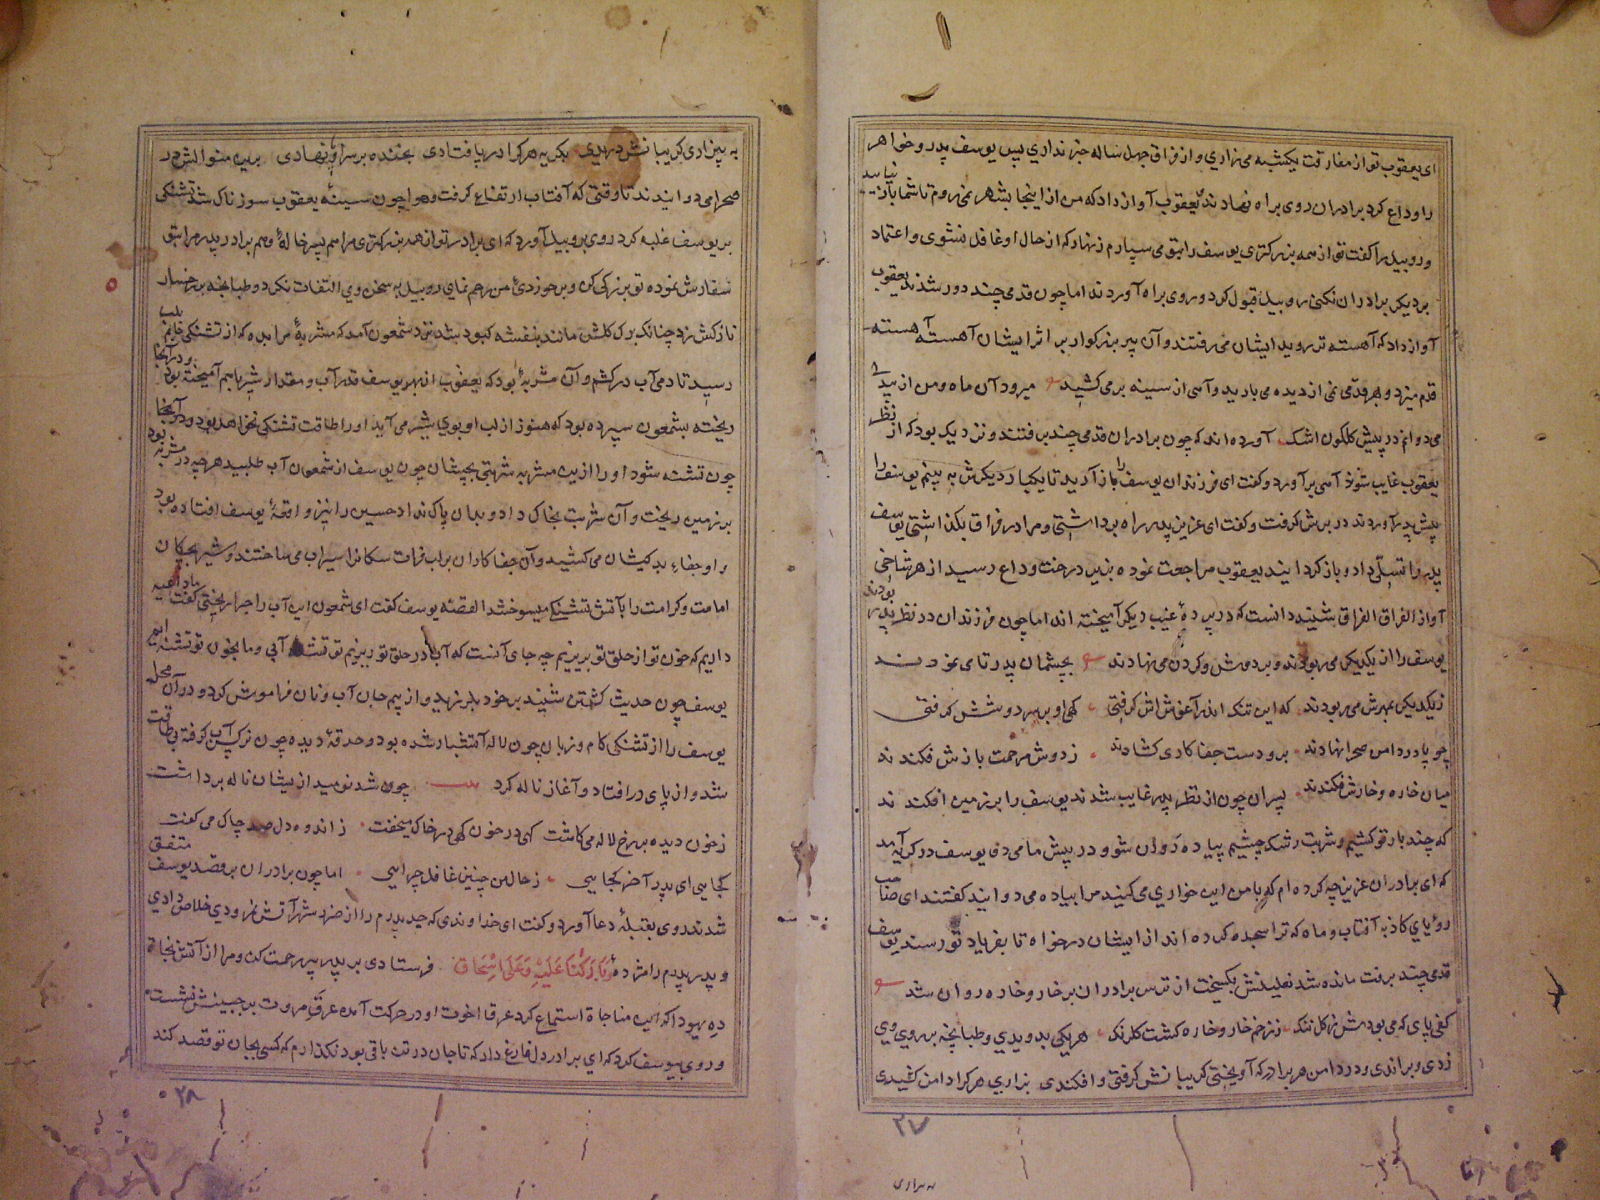 ای یعقوب تو از مفارقت یکشبه می زاری و از فراق چهل ساله خبر نداری پس یوسف پدر و خواهر
را وداع کرد برادران روی براه نهادند یعقوب آواز داد که من از اینجا بشهر نمی روم تا شما باز نیایید
و روبیل را گفت تو از همه بزرکتری یوسف را بتو می سپارم زنهار که از حال او غافل نشوی و اعتماد
بر دیکر برادران نکنی روبیل قبول کرد و روی براه آوردند اما چون قدمی چند دور شدند یعقوب
آواز داد که آهسته تر روید ایشان می رفتند و آن پیر بزرکوار بر اثر ایشان آهسته آهسته
قدم میزد و بهر قدمی نمی از دیده می بارید و آهی از سینه بر می کشید میرود آن ماه و من از پی
می دوانم در پیش کلکون اشک آورده اند که چون برادران قدمی چند برفتند و نزدیک بود که از نظر
یعقوب غایب شوند آهی برآورد و کفت ای فرزندان یوسف را باز آرید تا یکبار دیکرش به بینم یوسف را
پیش پدر آوردند در برش کرفت و کفت ای عزیز پدر راه برداشتی و مرا در فراق بکذاشتی یوسف
پدر را تسلی داد و باز کردانید یعقوب مراجعت نموده بزیر درخت وداع رسید از هر شاخی
آواز الفراق الفراق شنید دانست که در پردهٔ غیب دیکر آمیخته اند اما چون فرزندان در نظر پدر بودند
یوسف را از یکدیکر می ربودند و بر دوش و کردن می نهادند بچشمان پدر تا می نمودند
زیکدیکر بمهرش می ربودند که این تنک اندر آغوش اش کرفتی کهی او بر سر دوشش کرفتی
چو پا در دامن صحرا نهادند برو دست جفا کاری کشادند ز دوش مرحمت بارش فکندند
میان خاره و خارش فکندند پسران چون از نظر پدر غایب شدند یوسف را بر زمین افکندند
که چند بار تو کشیم و شربت رشک چشیم پیاده روان شو و در پیش ما می دو یوسف در کریه آمد
که ای برادران عزیز چه کرده ام که با من این خواری می کنید مرا پیاده می دوانید کفتند ای صاحب
رؤیای کاذبه آفتاب و ماه که ترا سجده کرده اند از ایشان درخواه تا بفریاد تو رسند یوسف
قدمی چند برفت مانده شد نعلینش بکسیخت از ترس برادران بر خار و خاره روان شد
کفی پای که می بودش ز کل ننک ز زخم خار و خاره کشت کلرنک هر یکی بدویدی و طبانچه بر روی وی
زدی و براندی و در دامن هر برادر که آویختی کریبانش کرفتی و افکندی بزاری هر کرا دامن کشیدی
۲۷
به بیزاری کریبانش دریدی بکریه هر کرا در پا فتادی بخنده بر سر او پا نهادی برین منوالش در
صحرا می دوانیدند تا وقتی که آفتاب ارتفاع کرفت و هوا چون سینهٔ یعقوب سوزناک شد تشنکی
بر یوسف غلبه کرد روی بروبیل آورد که ای برادر تو از همه بزرکتری مرا هم پسر خالهٔ و هم برادر پدر مرا بتو
سفارش نموده تو بزرکی کن و بر خوردیٔ من رحم نمای روبیل به سخن وی التفات نکرد و طبانچه بر رخسار
نازکش زد چنانکه برک کلش مانند بنفشه کبود شد نزد شمعون آمد که مشربهٔ مرا بده که از تشنکی جانم بلب
رسید تا دمی آب در کشم و آن مشربهٔ بود که یعقوب از بهر یوسف قدر آب و مقدار شیر با هم آمیخته بود و در آنجا
ریخته بشمعون سپرده بود که هنوز از لب او بوی شیر می آید او را طاقت تشنکی نخواهد بود
چون تشنه شود او را از این مشربه شربتی بچشان چون یوسف از شمعون آب طلبید هر چه در مشربه بود
بر زمین ریخت و آن شربت بخاک داد و بجان پاک نداد حسین را نیز واقعهٔ یوسف افتاده بود
و او جفاء بد کیشان می کشید و آن جفا کاران بر لب فرات سکانرا سیراب می ساختند و شیر بچکان
امامت و کرامت را بآتش تشنکی میسوختند القصه یوسف کفت ای شمعون این آب را چرا ریختی کفت
داریم که خون تو از حلق تو بریزیم چه جای آنست که آب در حلق تو ریزیم تو تشنه آبی و ما بخون تو تشنه ایم
یوسف چون حدیث کشتن شنید بر خود بلرزید و از بیم جان آب و نان فراموش کرد و در آن محله
یوسف را از تشنکی کام و زبان چون لاله آتشبار شده بود و حدقهٔ دیده چون نرکس آب کرفته بی طاقت
شد و از پای در افتاد و آغاز ناله کرد چون شد نومید از یشان ناله برداشت
ز خون دیده بر رخ لاله می کاشت کهی در خون کهی در خاک میخفت ز اندوه دل صد چاک می کفت
کجایی ای پدر آخر کجایی ز حال من چنین غافل چرایی اما چون برادران بر قصد یوسف متفق
شدند روی بقبلهٔ دعا آورد و کفت ای خداوندی که جد پدرم را از ضرر شرر آتش نمرودی خلاص دادی
و پدر پدرم را مژدهٔ وَبَارَكْنَا عَلَيْهِ وَعَلَى إِسْحَاقَ فرستادی بر پدر پیر رحمت کن و مرا از آتش نجاة
ده یهودا که این مناجاة استماع کرد عرق اخوت او در حرکت آمده عرق مروت بر جبینش نشست
و روی بیوسف کرد که ای برادر دل فارغ دار که تا جان در تن باقی بود نکذارم که کسی بجان تو قصد کند
۲۸